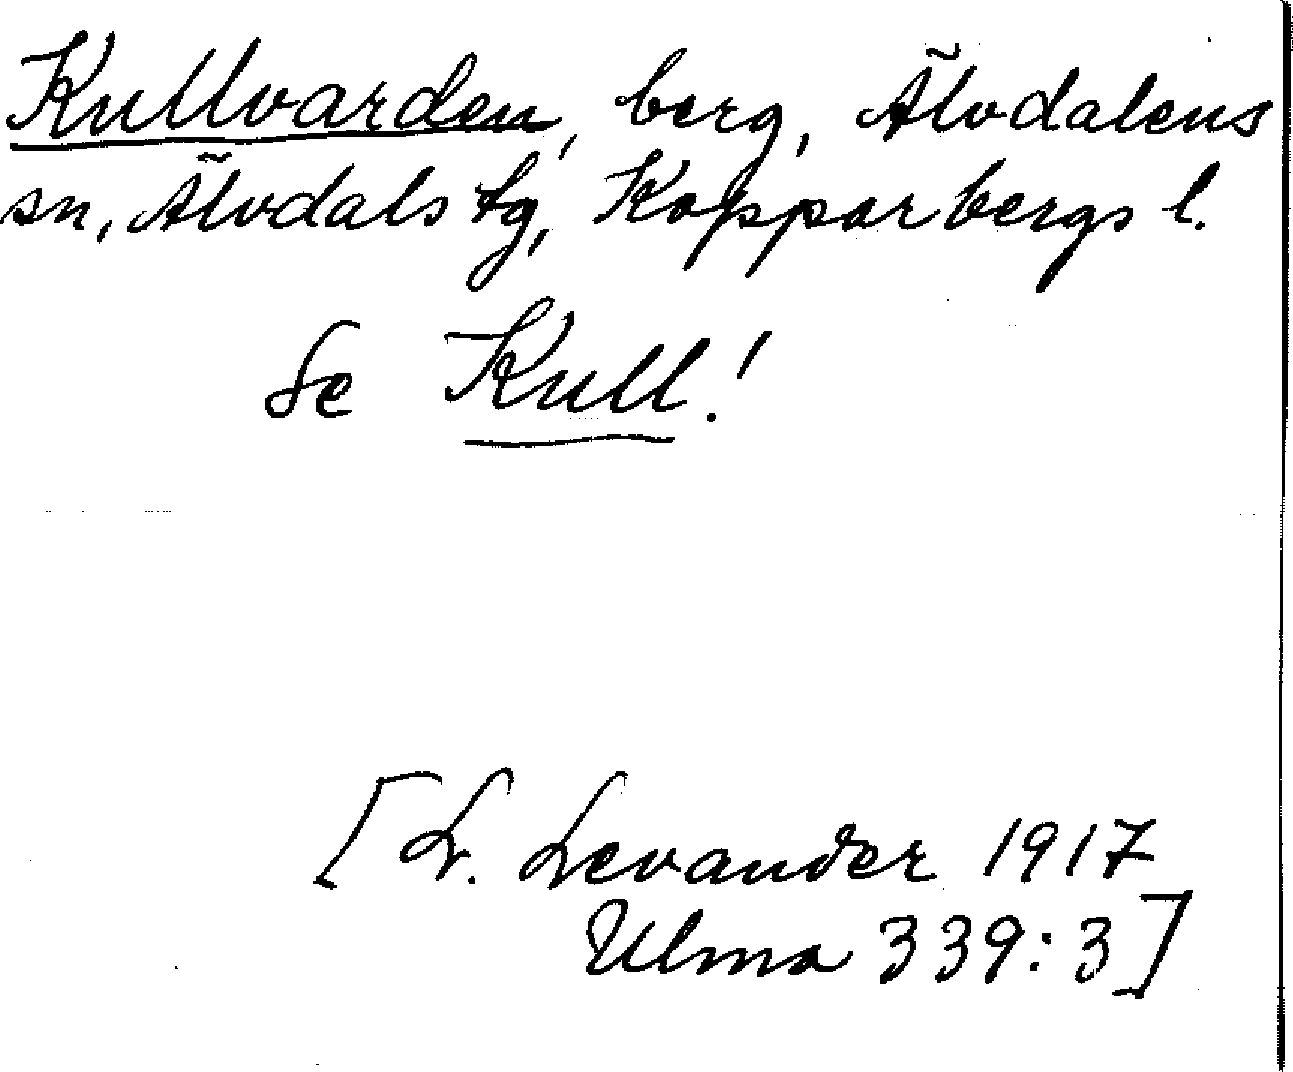 Kullvarden, berg, Älvdalens
sn, Älvdals tg, Kopparbergs l.
Se Kull!
[L. Levander 1917
Ulma 339:3]